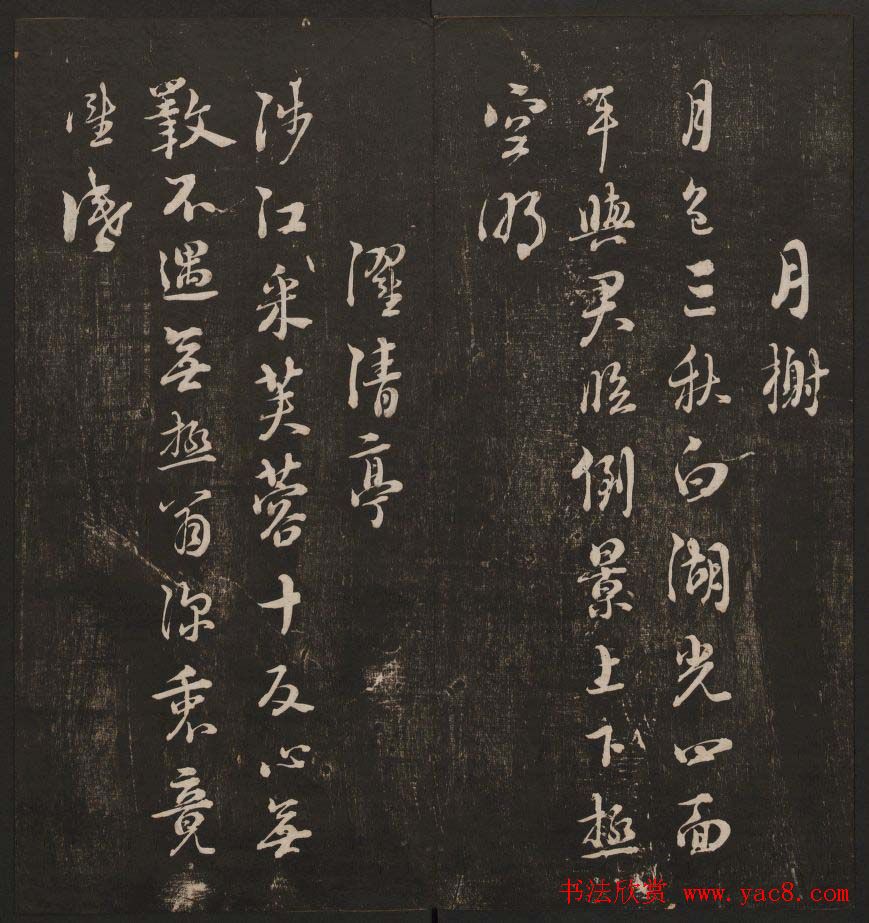 月榭
月色三秋白湖光四面
平與君臨倒景上下極
空明
濯清亭
涉江采芙蓉十反心無
斁不遇無極翁深衷竟
誰識
书法欣赏 www.yac8.com